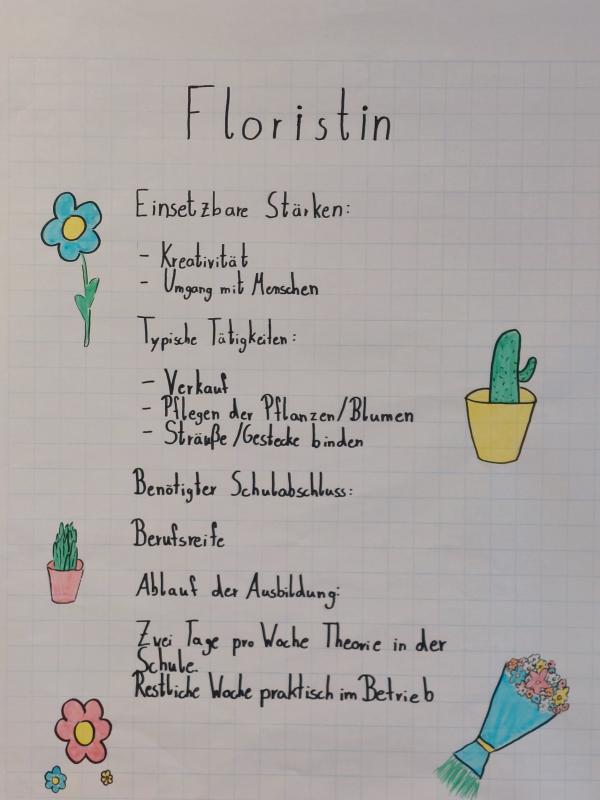 Floristin
Einsetzbare Stärken:
- Kreativität
- Umgang mit Menschen
Typische Tätigkeiten:
- Verkauf
- Pflegen der Pflanzen/Blumen
- Sträuße/Gestecke binden
Benötigter Schulabschluss:
Berufsreife
Ablauf der Ausbildung:
Zwei Tage pro Woche Theorie in der
Schule.
Restliche Woche praktisch im Betrieb